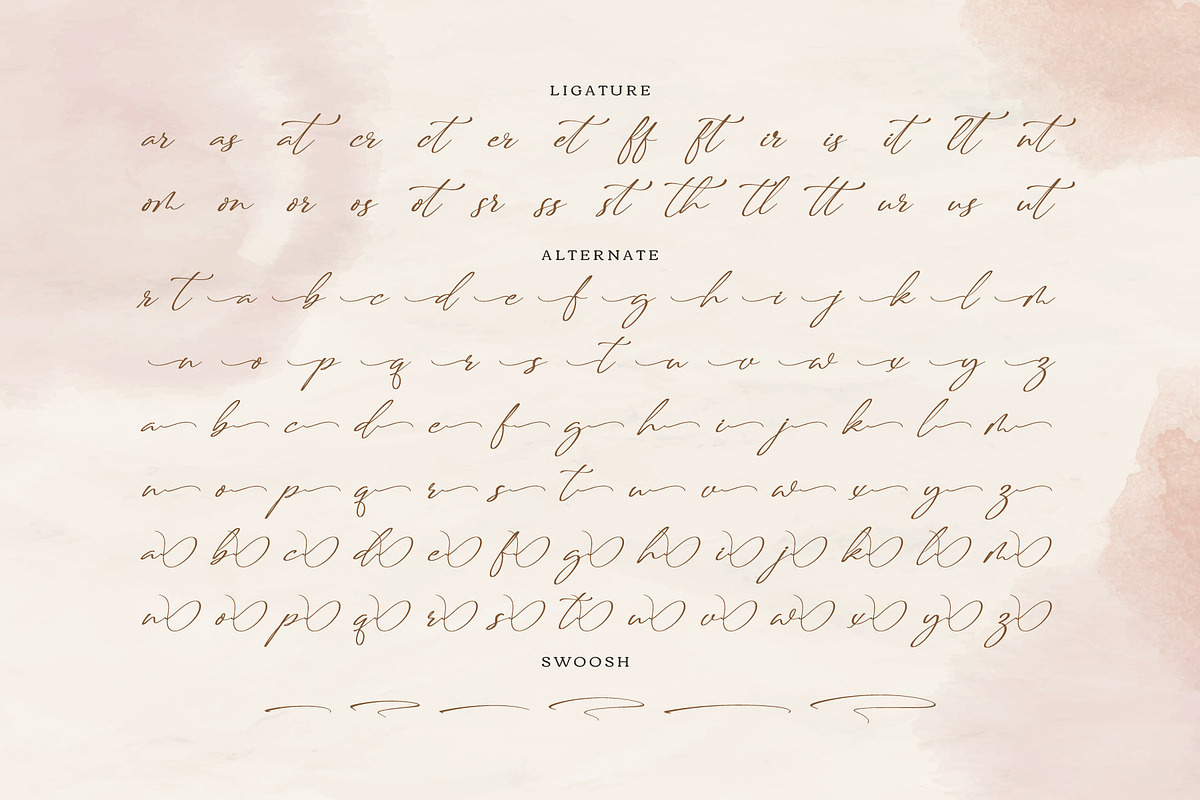 LIGATURE
ar as at cr ct er et ff ft ir is it lt nt
om on or os ot sr ss st th tl tt ur us ut
ALTERNATE
r t a b c d e f g h i j k l m
n o p q r s t u v w x y z
a b c d e f g h i j k l m
n o p q r s t u v w x y z
a b c d e f g h i j k l m
n o p q r s t u v w x y z
SWOOSH